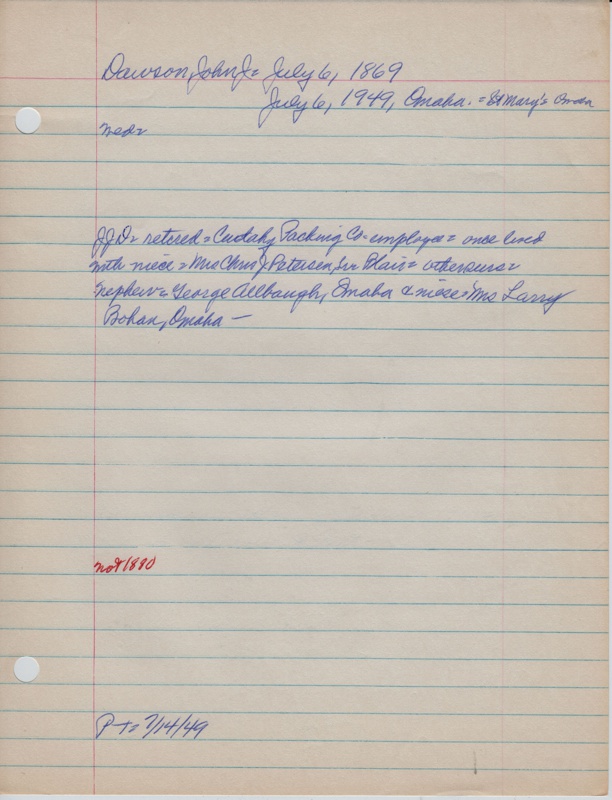 Dawson, John J = July 6, 1869
July 6, 1949, Omaha. = St Mary's Omaha
Ned =
JJD = retired = Cudahy Packing Co = employee = once lived
with niece = Mrs Chris J Petersen, Sr Blair = other survs =
Nephew = George Allbaugh, Omaha & niece = Mrs Larry
Bohan, Omaha —
not 1880
P-T = 7/14/49